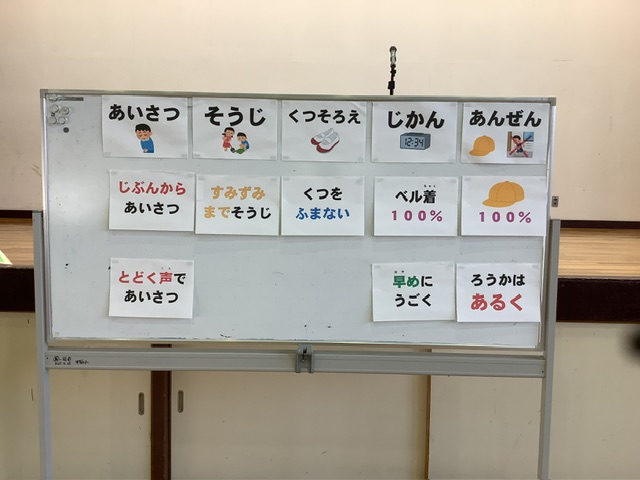 あいさつ
そうじ
くつそろえ
じかん
12:34
あんぜん
じぶんから
あいさつ
すみずみ
までそうじ
くつを
ふまない
ベル着
100%
100%
とどく声で
あいさつ
早めに
うごく
ろうかは
あるく